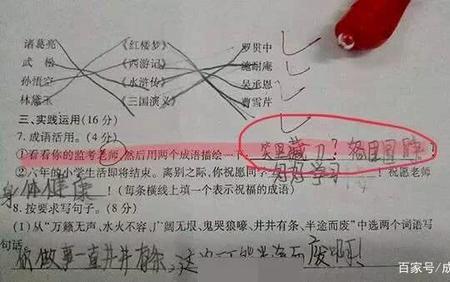 诸葛亮 《红楼梦》 罗贯中
武松 《西游记》 施耐庵
孙悟空 《水浒传》 吴承恩
林黛玉 《三国演义》 曹雪芹
三、实践运用(16分)
7.成语活用。(4分)
①看看你的监考老师,然后用两个成语描绘一下: 笑里藏刀?
②六年的小学生活即将结束。离别之际,你祝愿同学 好好学习 !祝愿老师
身体健康 !(每条横线上填一个表示祝福的成语)
8.按要求写句子。(8分)
(1)从“万籁无声、水火不容、广阔无垠、鬼哭狼嚎、井井有条、半途而废”中选两个词语写
句话
你做事一直井井有条,这 废啊!
百家号/成